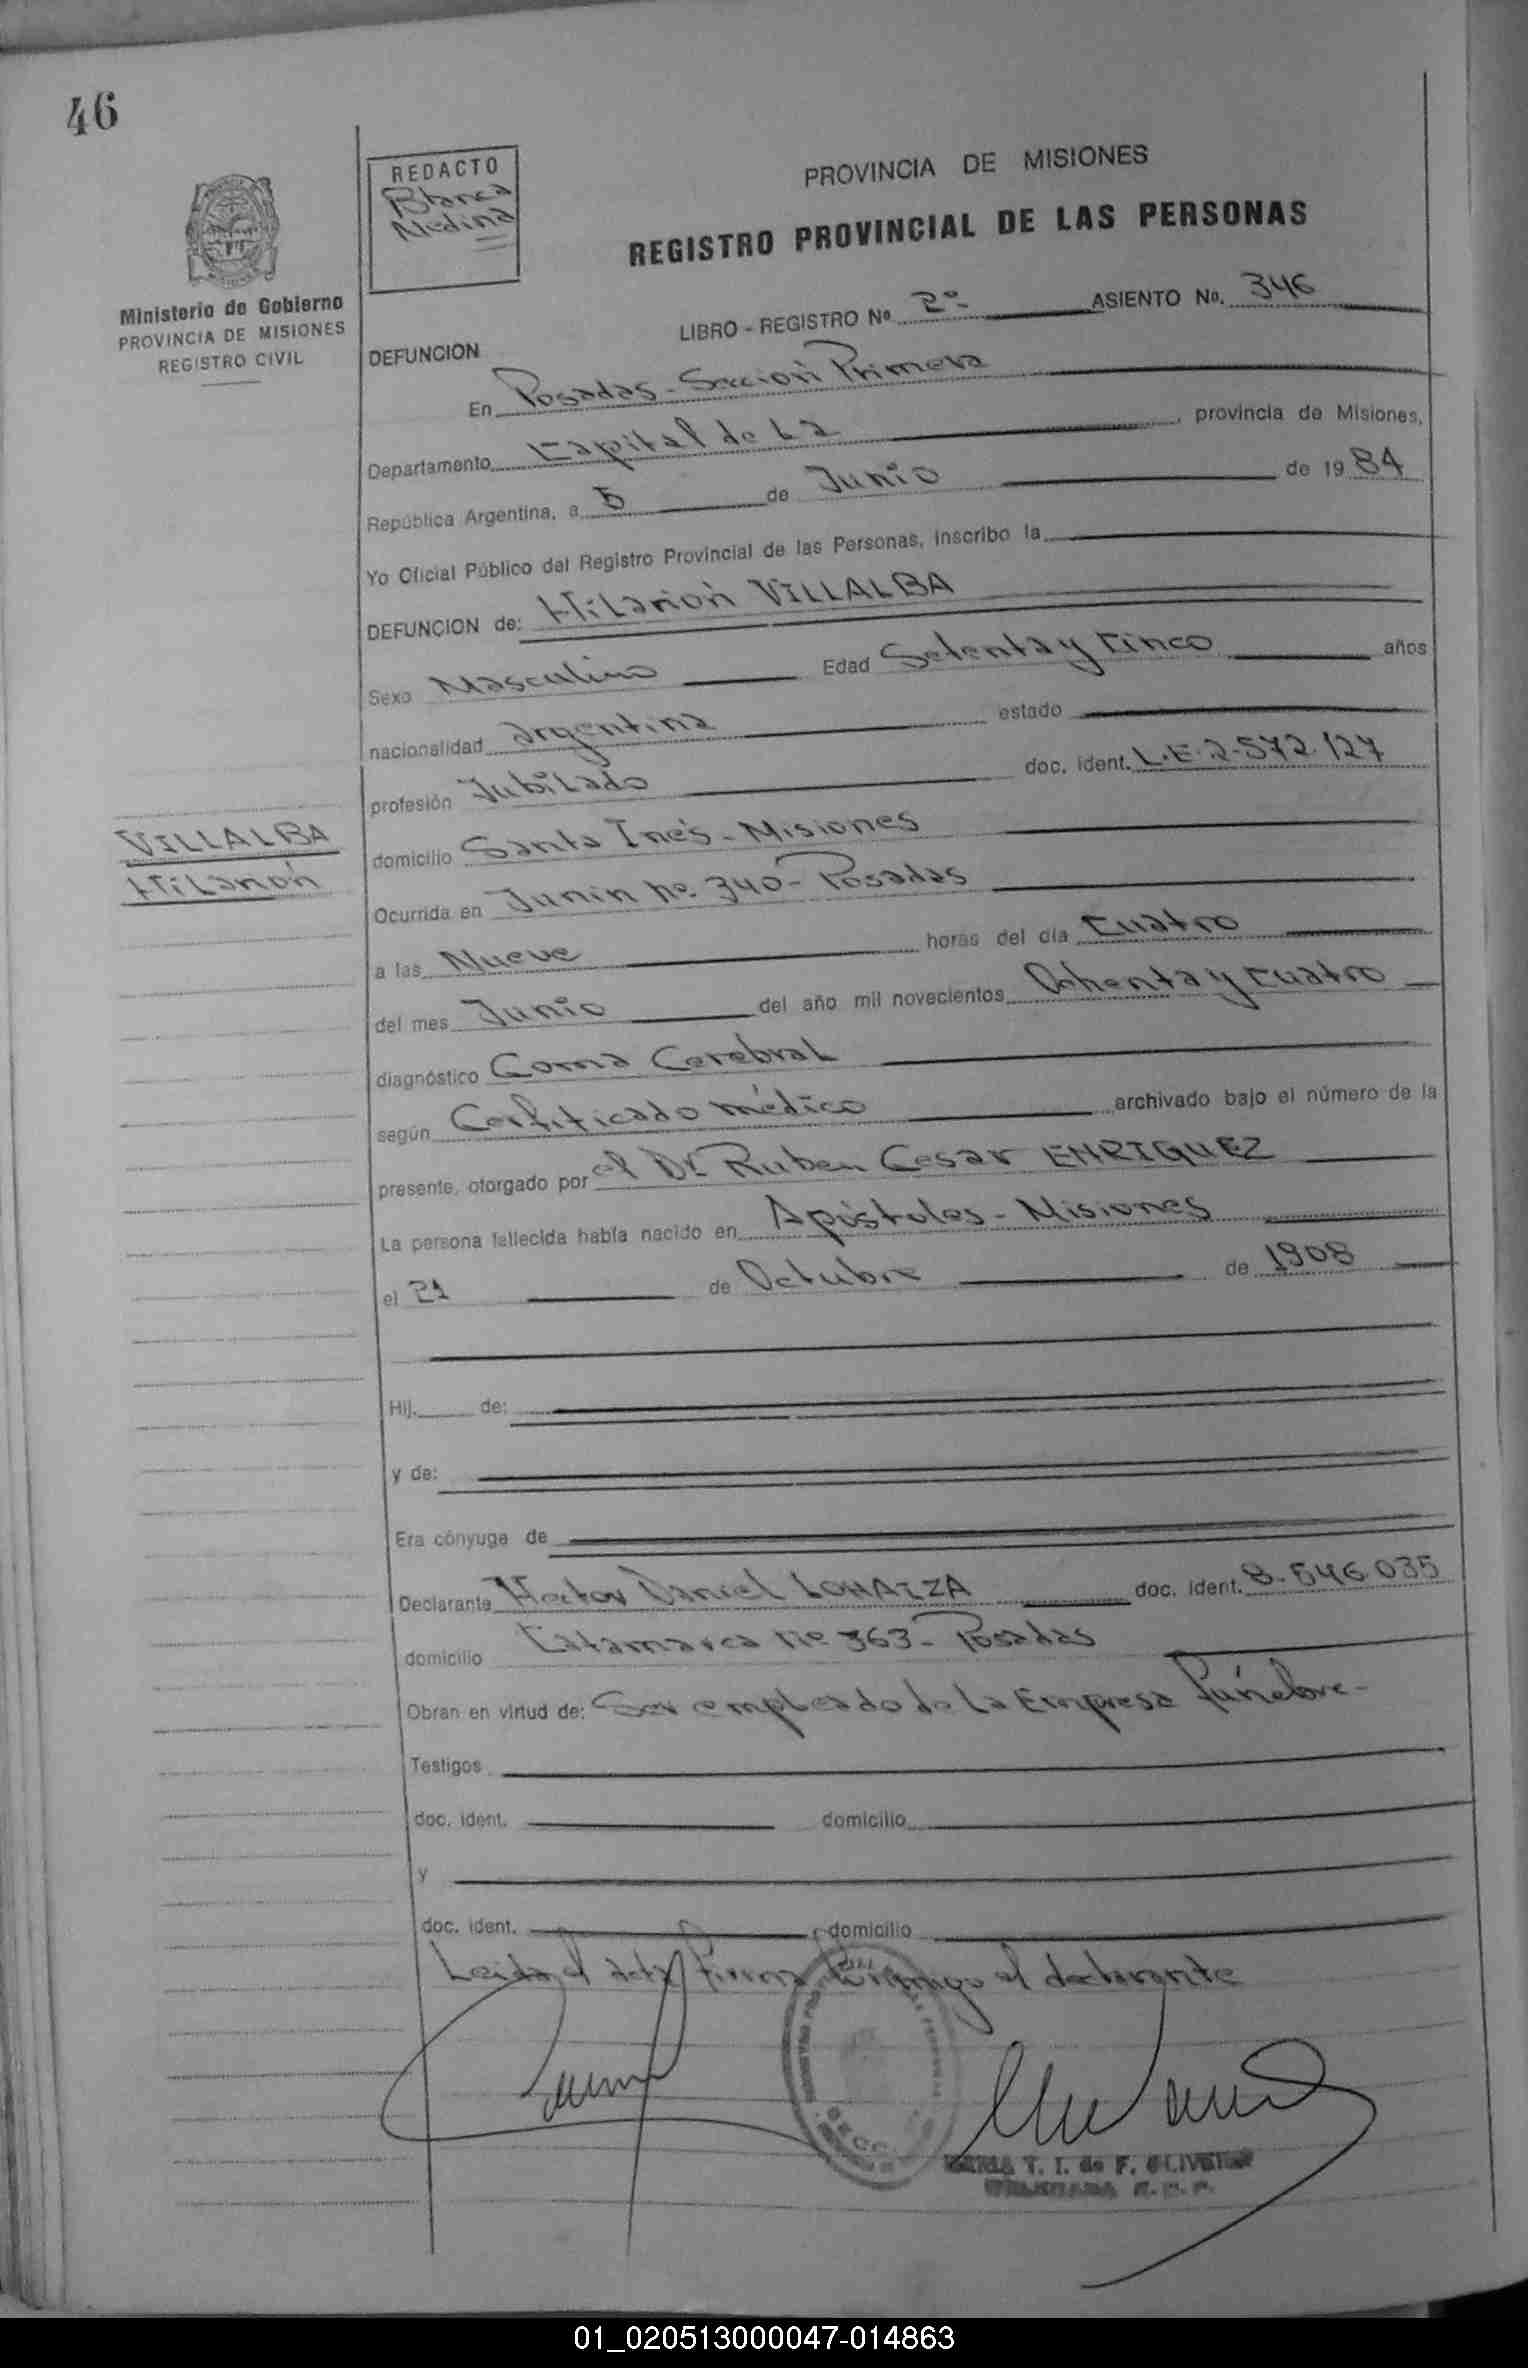 46
REDACTO
Blanca
Medina
Ministerio de Gobierno
PROVINCIA DE MISIONES
REGISTRO CIVIL
PROVINCIA DE MISIONES
REGISTRO PROVINCIAL DE LAS PERSONAS
LIBRO - REGISTRO Nº 2º ASIENTO No. 346
DEFUNCION
En Posadas - Sección Primera
Departamento Capital de La , provincia de Misiones,
República Argentina, a 5 de Junio de 1984
Yo Oficial Público del Registro Provincial de las Personas, inscribo la
DEFUNCION de: Hilarión VILLALBA
Sexo Masculino Edad Setenta y Cinco años
nacionalidad argentina estado
profesión Jubilado doc. ident. L.E. 2.572.127
VILLALBA
Hilarión
domicilio Santa Inés - Misiones
Ocurrida en Junin nº 340 - Posadas
a las Nueve horas del día Cuatro
del mes Junio del año mil novecientos Ochenta y cuatro
diagnóstico Coma Cerebral
según Certificado médico archivado bajo el número de la
presente, otorgado por el Dr. Ruben Cesar ENRIQUEZ
La persona fallecida había nacido en Apóstoles - Misiones
el 21 de Octubre de 1908
Hij. de:
y de:
Era cónyuge de
Declarante Hector Daniel LOHAIZA doc. ident. 8.546.035
domicilio Catamarca Nº 363 - Posadas
Obran en virtud de: Ser empleado de la Empresa Fúnebre -
Testigos
doc. ident. domicilio
y
doc. ident. domicilio
Leida el acta firma conmigo el declarante
T. I. de F.
01_020513000047-014863